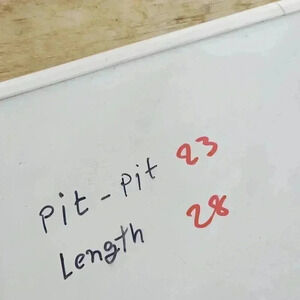 Pit - Pit 23
Length 28